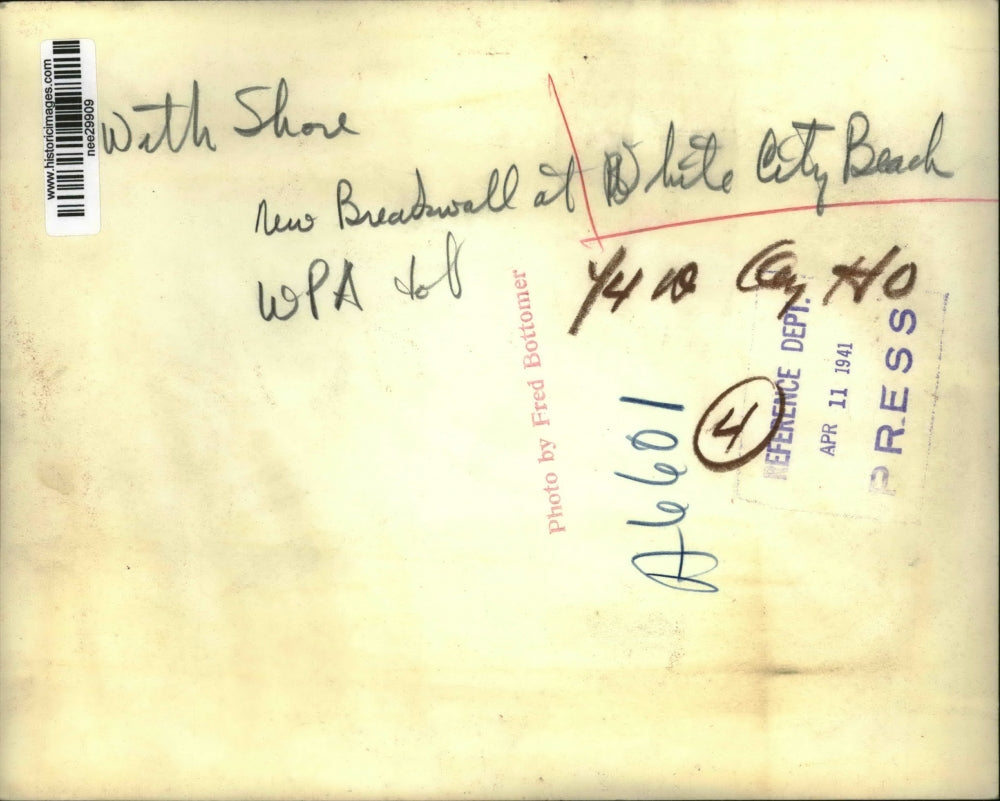 With Shore
new Breakwall at White City Beach
WPA Job
4
A6601
Photo by Fred Bottomer
REFERENCE DEPT.
APR 11 1941
PRESS
www.historicimages.com
nee29909